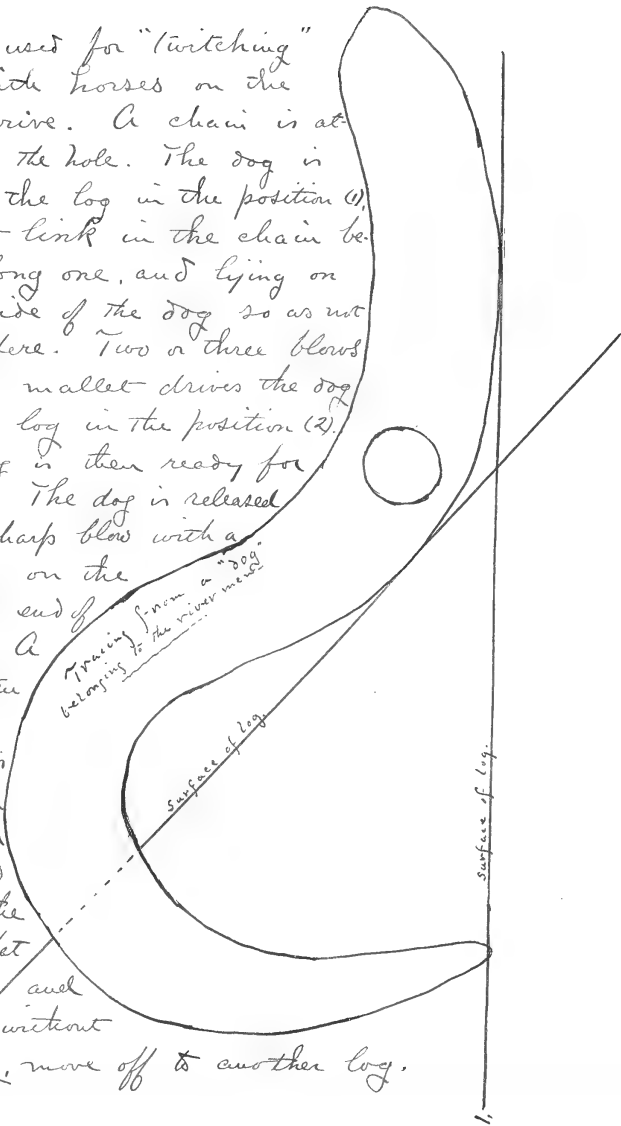 used for "twitching"
ith horses on the
rive. A chain is at-
the hole. The dog is
the log in the position (1),
link in the chain be-
ong one, and lying on
ide of the dog so as not
fere. Two or three blows
mallet drives the dog
log in the position (2).
g is then ready for
The dog is released
harp blow with a
on the
end of
A
Tracing from a "dog"
belonging to the river men.
surface of log.
surface of log.
the
et
and
without
move off to another log.
1.